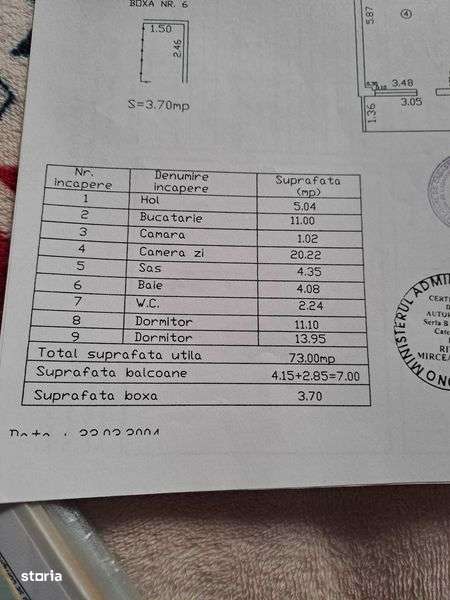 BOXA NR. 6
1.50
2.46
S=3.70mp
5.87
4
3.48
3.05
1.36
Nr. incapere Denumire incapere Suprafata (mp)
1 Hol 5.04
2 Bucatarie 11.00
3 Camara 1.02
4 Camera zi 20.22
5 Sas 4.35
6 Baie 4.08
7 W.C. 2.24
8 Dormitor 11.10
9 Dormitor 13.95
Total suprafata utila 73.00mp
Suprafata balcoane 4.15+2.85=7.00
Suprafata boxa 3.70
MINISTERUL ADMI
CERTI
AUTOR
Seria B
Cate
RI
MIRCEA
storia